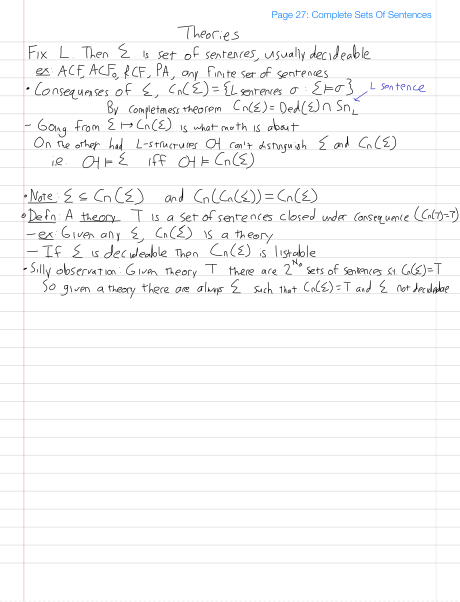 Page 27: Complete Sets Of Sentences
Theories
Fix L. Then Σ is set of sentences, usually decideable
ex: ACF, ACF₀, RCF, PA, any finite set of sentences
• Consequenses of Σ, Cn(Σ) = {L sentences σ : Σ ⊨ σ} L sentence
By completness theorem Cn(Σ) = Ded(Σ) ∩ Sn_L
- Going from Σ ↦ Cn(Σ) is what math is about
On the other had L-structures 𝔄 can't distinguish Σ and Cn(Σ)
i.e. 𝔄 ⊨ Σ iff 𝔄 ⊨ Cn(Σ)
• Note: Σ ⊆ Cn(Σ) and Cn(Cn(Σ)) = Cn(Σ)
• Defn: A theory T is a set of sentences closed under consequence (Cn(T)=T)
- ex: Given any Σ, Cn(Σ) is a theory
- If Σ is decideable then Cn(Σ) is listable
• Silly observation: Given theory T there are 2^ℵ₀ sets of sentences st Cn(Σ)=T
So given a theory there are always Σ such that Cn(Σ)=T and Σ not decidable